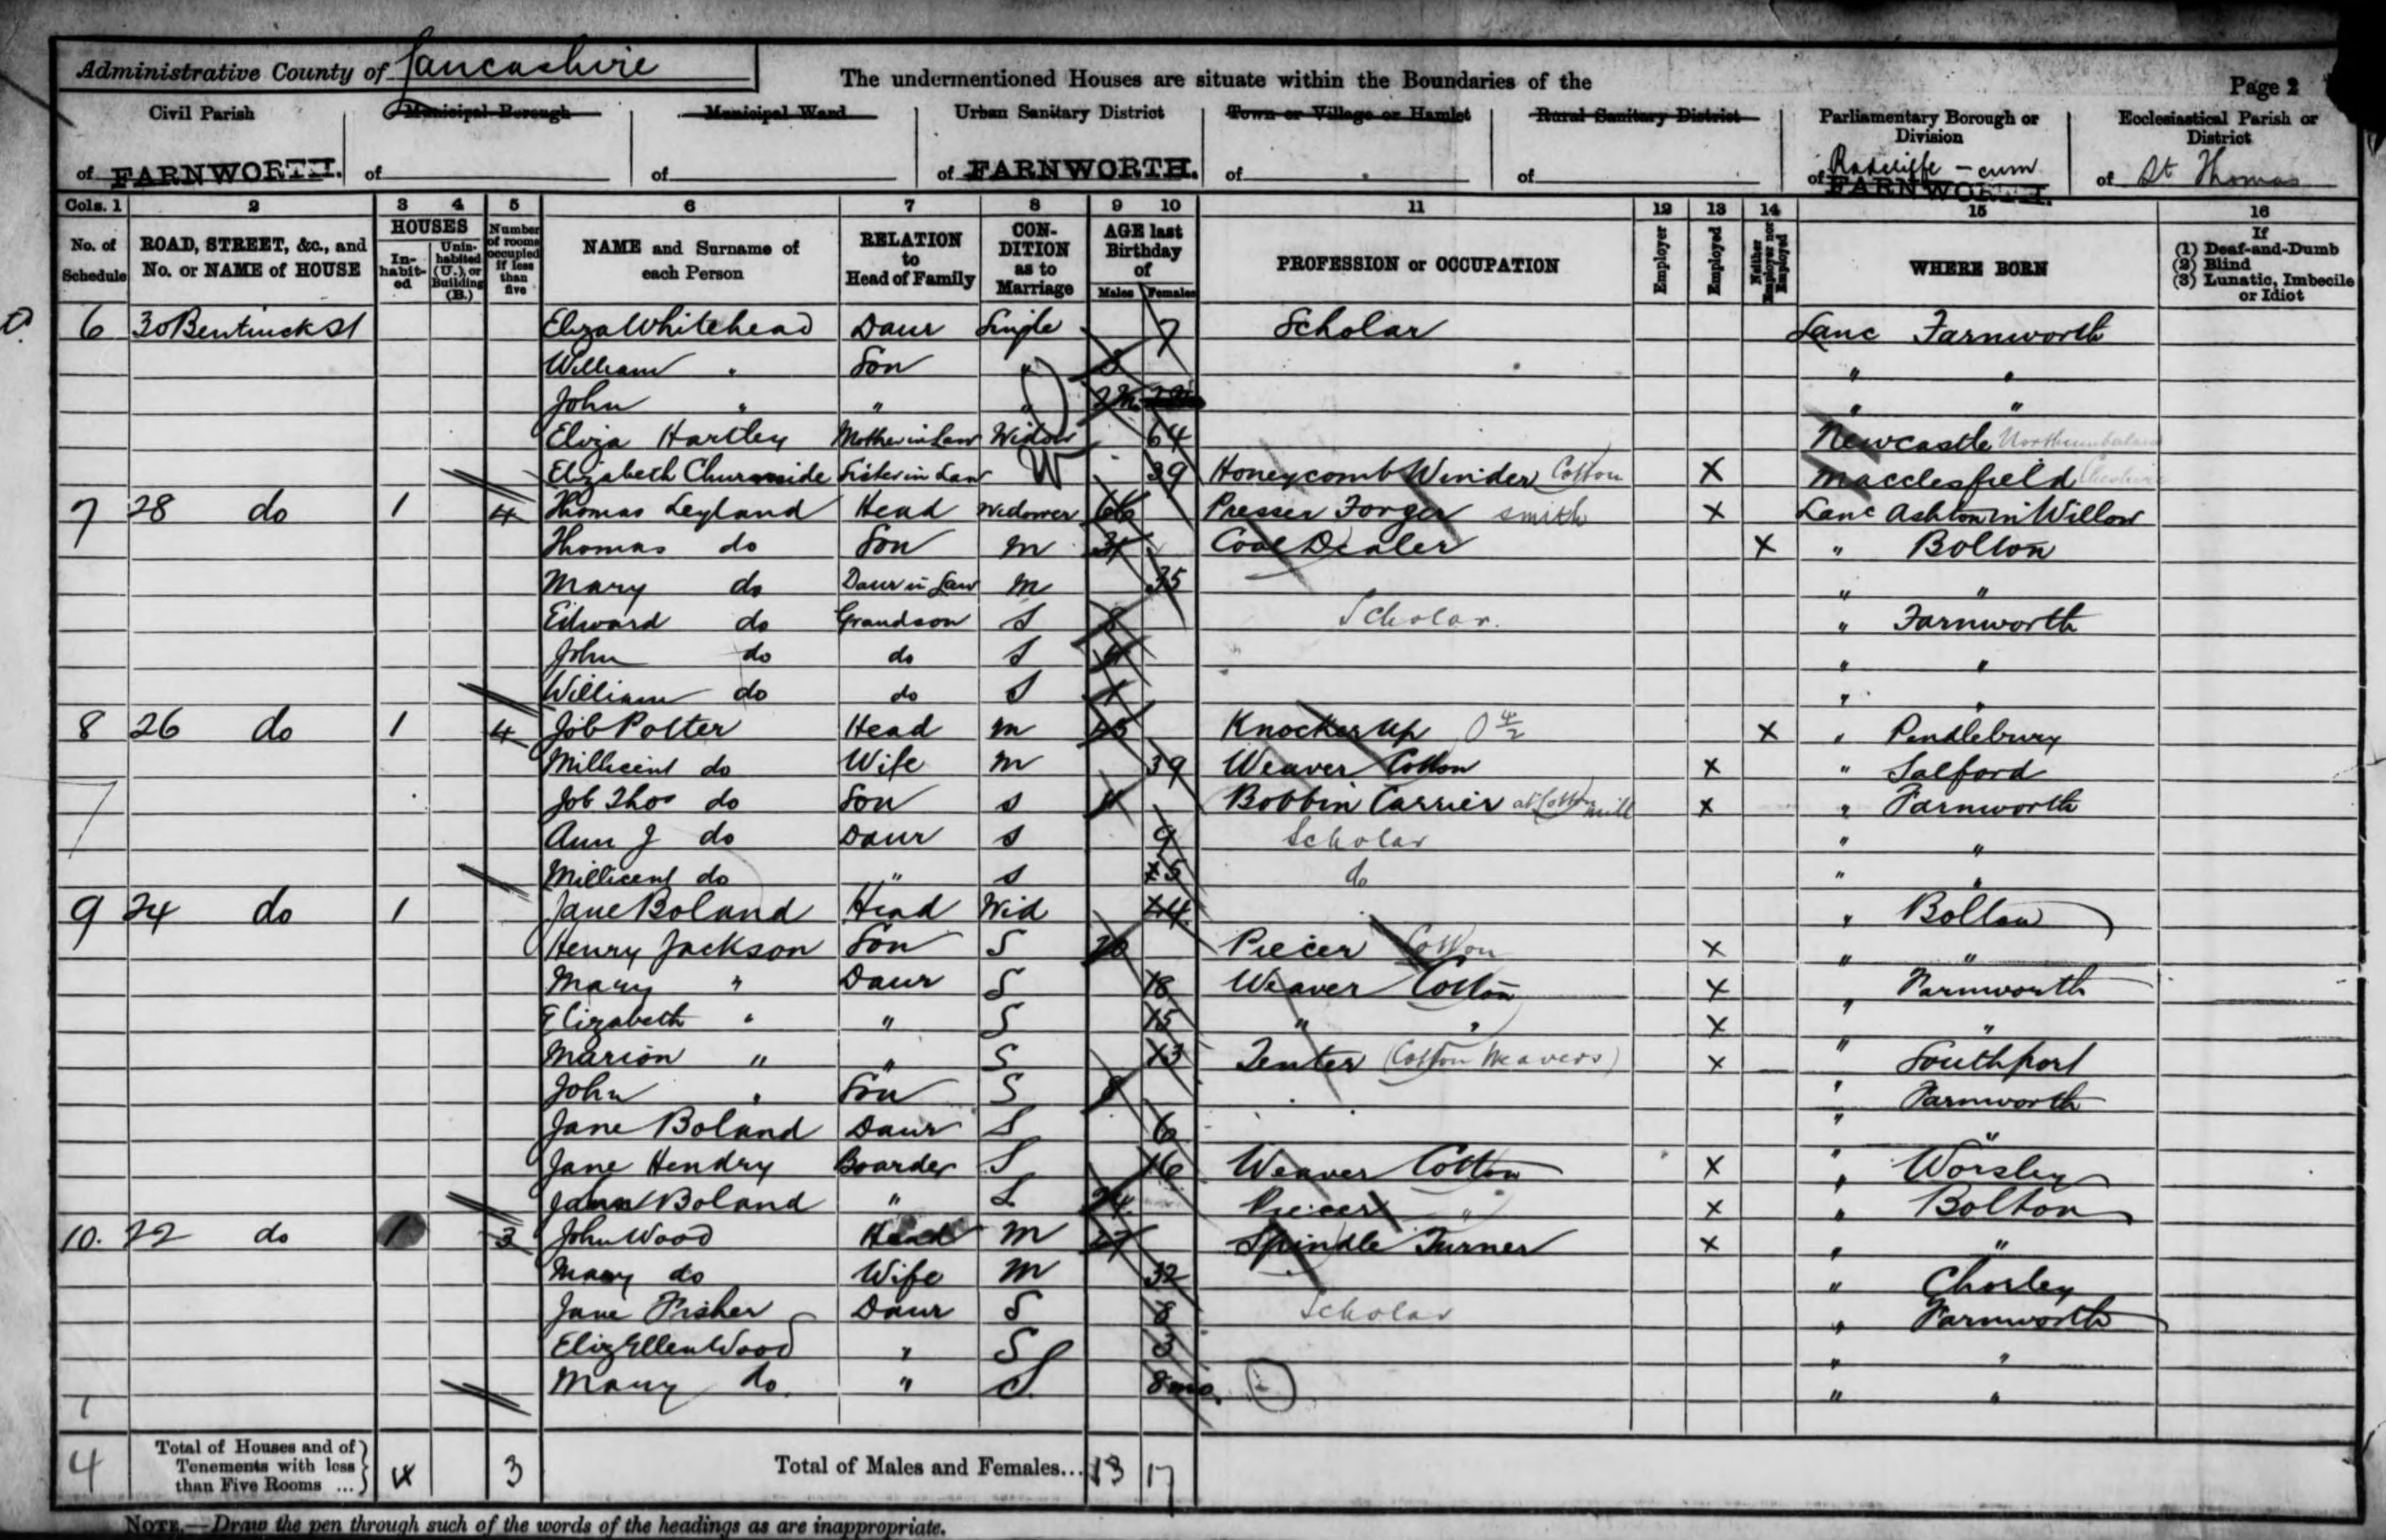 Administrative County of Lancashire The undermentioned Houses are situate within the Boundaries of the Page 2
Civil Parish Municipal Borough Municipal Ward Urban Sanitary District Town or Village or Hamlet Rural Sanitary District Parliamentary Borough or Division Ecclesiastical Parish or District
of FARNWORTH. of of of FARNWORTH. of of of Radcliffe-cum FARNWORTH. of St Thomas
Cols. 1 2 3 4 5 6 7 8 9 10 11 12 13 14 15 16
No. of Schedule ROAD, STREET, &c., and No. or NAME of HOUSE HOUSES Inhabited Uninhabited (U.), or Building (B.) Number of rooms occupied if less than five NAME and Surname of each Person RELATION to Head of Family CONDITION as to Marriage AGE last Birthday of Males Females PROFESSION or OCCUPATION Employer Employed Neither Employer nor Employed WHERE BORN If (1) Deaf-and-Dumb (2) Blind (3) Lunatic, Imbecile or Idiot
6 30 Bentinck St Eliza Whitehead Daur Single 7 Scholar Lanc Farnworth
William " Son " 3 " "
John " " " 2m " "
Eliza Hartley Mother in Law Widow 64 Newcastle Northumberland
Elizabeth Sister in Law W 39 Honeycomb Winder Cotton X Macclesfield Cheshire
7 28 do 1 4 Thomas Leyland Head Widower 66 Presser Forger smith X Lanc Ashton in Willow
Thomas do Son M Coal Dealer X " Bolton
Mary do Daur in Law M 35 " "
Edward do Grandson S 8 Scholar. " Farnworth
John do do S 4 " "
William do do S 1 " "
8 26 do 1 4 Job Potter Head M 45 Knocker Up 0 4/2 X " Pendlebury
Millicent do Wife M 39 Weaver Cotton X " Salford
Job Thos do Son S 11 Bobbin Carrier at Cotton mill X " Farnworth
Ann J do Daur S 9 Scholar " "
Millicent do " S 5 do " "
9 24 do 1 Jane Boland Head Wid 44 " Bolton
Henry Jackson Son S 20 Piecer Cotton X " "
Mary " Daur S 18 Weaver Cotton X " Farnworth
Elizabeth " " S 15 " " X " "
Marion " " S 13 Tenter (Cotton Weavers) X " Southport
John " Son S 8 " Farnworth
Jane Boland Daur S 6 " "
Jane Hendry Boarder S 16 Weaver Cotton X " Worsley
Boland " S 24 Piecer " X " Bolton
10. 22 do 1 3 John Wood Head M Spindle Turner X " "
Mary do Wife M 32 " Chorley
Jane Fisher Daur S 8 Scholar " Farnworth
Eliz Ellen Wood " S 3 " "
Mary do. " S. 8 mo. " "
4 Total of Houses and of Tenements with less than Five Rooms ... 4 3 Total of Males and Females... 13 17
NOTE.—Draw the pen through such of the words of the headings as are inappropriate.